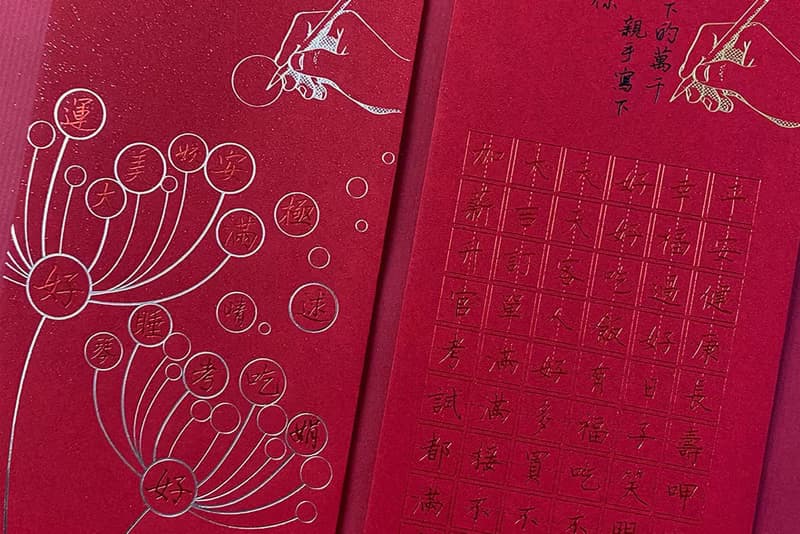 運
美
好
安
大
滿
極
好
晴
逑
睡
琴
考
吃
娟
好
下的萬千
親手寫下
平安健康長壽呷
幸福過好日子笑
好好吃飯有福吃不
大客人好多買不
大吉訂單滿滿接不
加薪升官考試都滿